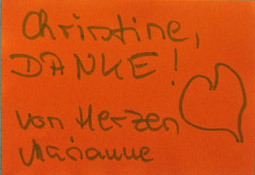 Christine,
DANKE!
von Herzen
Marianne